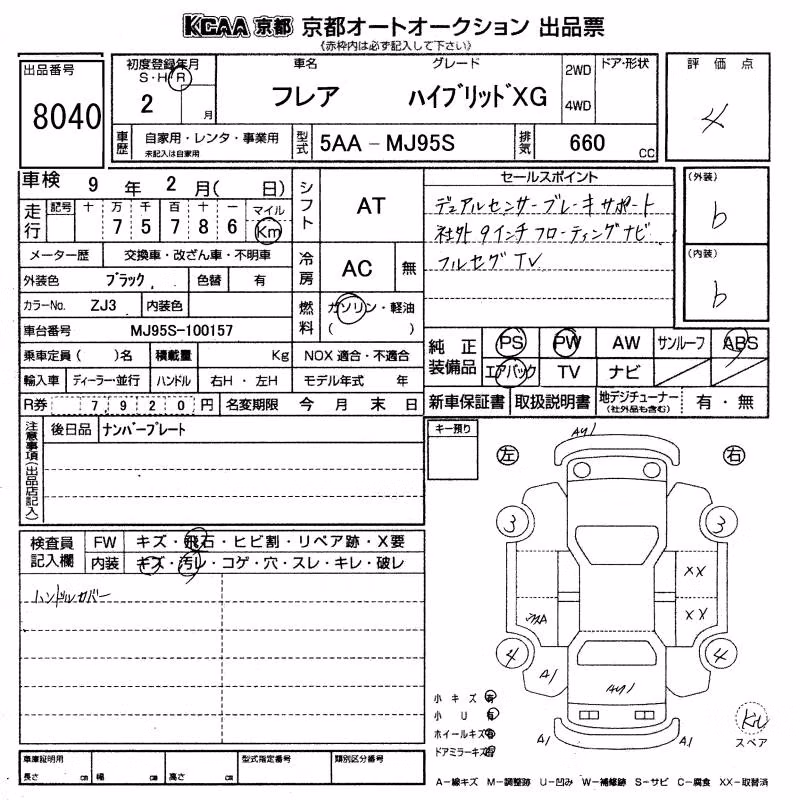 KCAA 京都 京都オートオークション 出品票
《赤枠内は必ず記入して下さい》
出品番号
8040
初度登録年月
S・H・R
2 月
車名
フレア
グレード
ハイブリッドXG
2WD
4WD
ドア・形状
評価点
4
車歴
自家用・レンタ・事業用
未記入は自家用
型式
5AA－MJ95S
排気
660 cc
車検 9年 2月( 日)
走行
記号 十 万 千 百 十 一 マイル
7 5 7 8 6 Km
メーター歴 交換車・改ざん車・不明車
外装色 ブラック 色替 有
カラーNo. ZJ3 内装色
車台番号 MJ95S-100157
乗車定員( )名 積載量 Kg NOX 適合・不適合
輸入車 ディーラー・並行 ハンドル 右H・左H モデル年式 年
R券 7,920円 名変期限 今月末日
シフト
AT
冷房
AC 無
燃料
ガソリン・軽油
( )
セールスポイント
デュアルセンサーブレーキサポート
社外9インチフローティングナビ
フルセグTV
(外装)
b
(内装)
b
純正装備品
PS PW AW サンルーフ ABS
エアバック TV ナビ
新車保証書 取扱説明書 地デジチューナー(社外品も含む) 有・無
注意事項(出品店記入)
後日品 ナンバープレート
キー預り
左
右
検査員記入欄
FW キズ・飛石・ヒビ割・リペア跡・X要
内装 キズ・汚レ・コゲ・穴・スレ・キレ・破レ
ハンドルカバー
AU1
3
3
XX
XX
4
4
A1
AU1
A1
A1
小キズ 有
小U 有
ホイールキズ 有
ドアミラーキズ 有
スペア
車庫証明用
長さ cm 幅 cm 高さ cm
型式指定番号
類別区分番号
A－線キズ M－調整跡 U－凹み W－補修跡 S－サビ C－腐食 XX－取替済